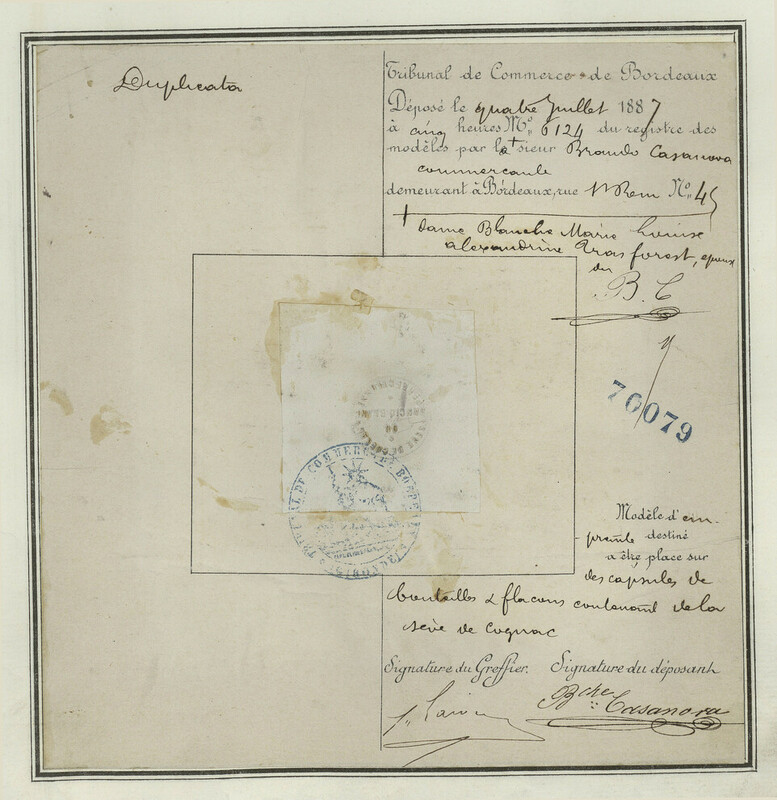 Duplicata
Tribunal de Commerce de Bordeaux
Déposé le quatre Juillet 1887
à cinq heures Nº 6124 du registre des
modèles par la † sieur Brando Casanova
commercante
demeurant à Bordeaux, rue Nº 45
† dame Blanche Marie Louise
alexandrine forest, epouse
du
B. C
70079
TRIBUNAL DE COMMERCE DE BORDEAUX
Modèle d'em-
preinte destiné
a être place sur
des capsules de
bouteilles & flacons contenant de la
sève de Cognac
Signature du Greffier. Signature du déposant
Bche Casanova